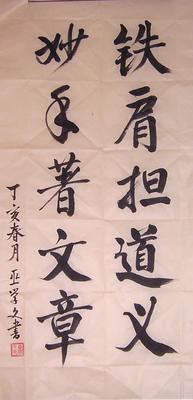 铁肩担道义
妙手著文章
丁亥春月 巫学文書